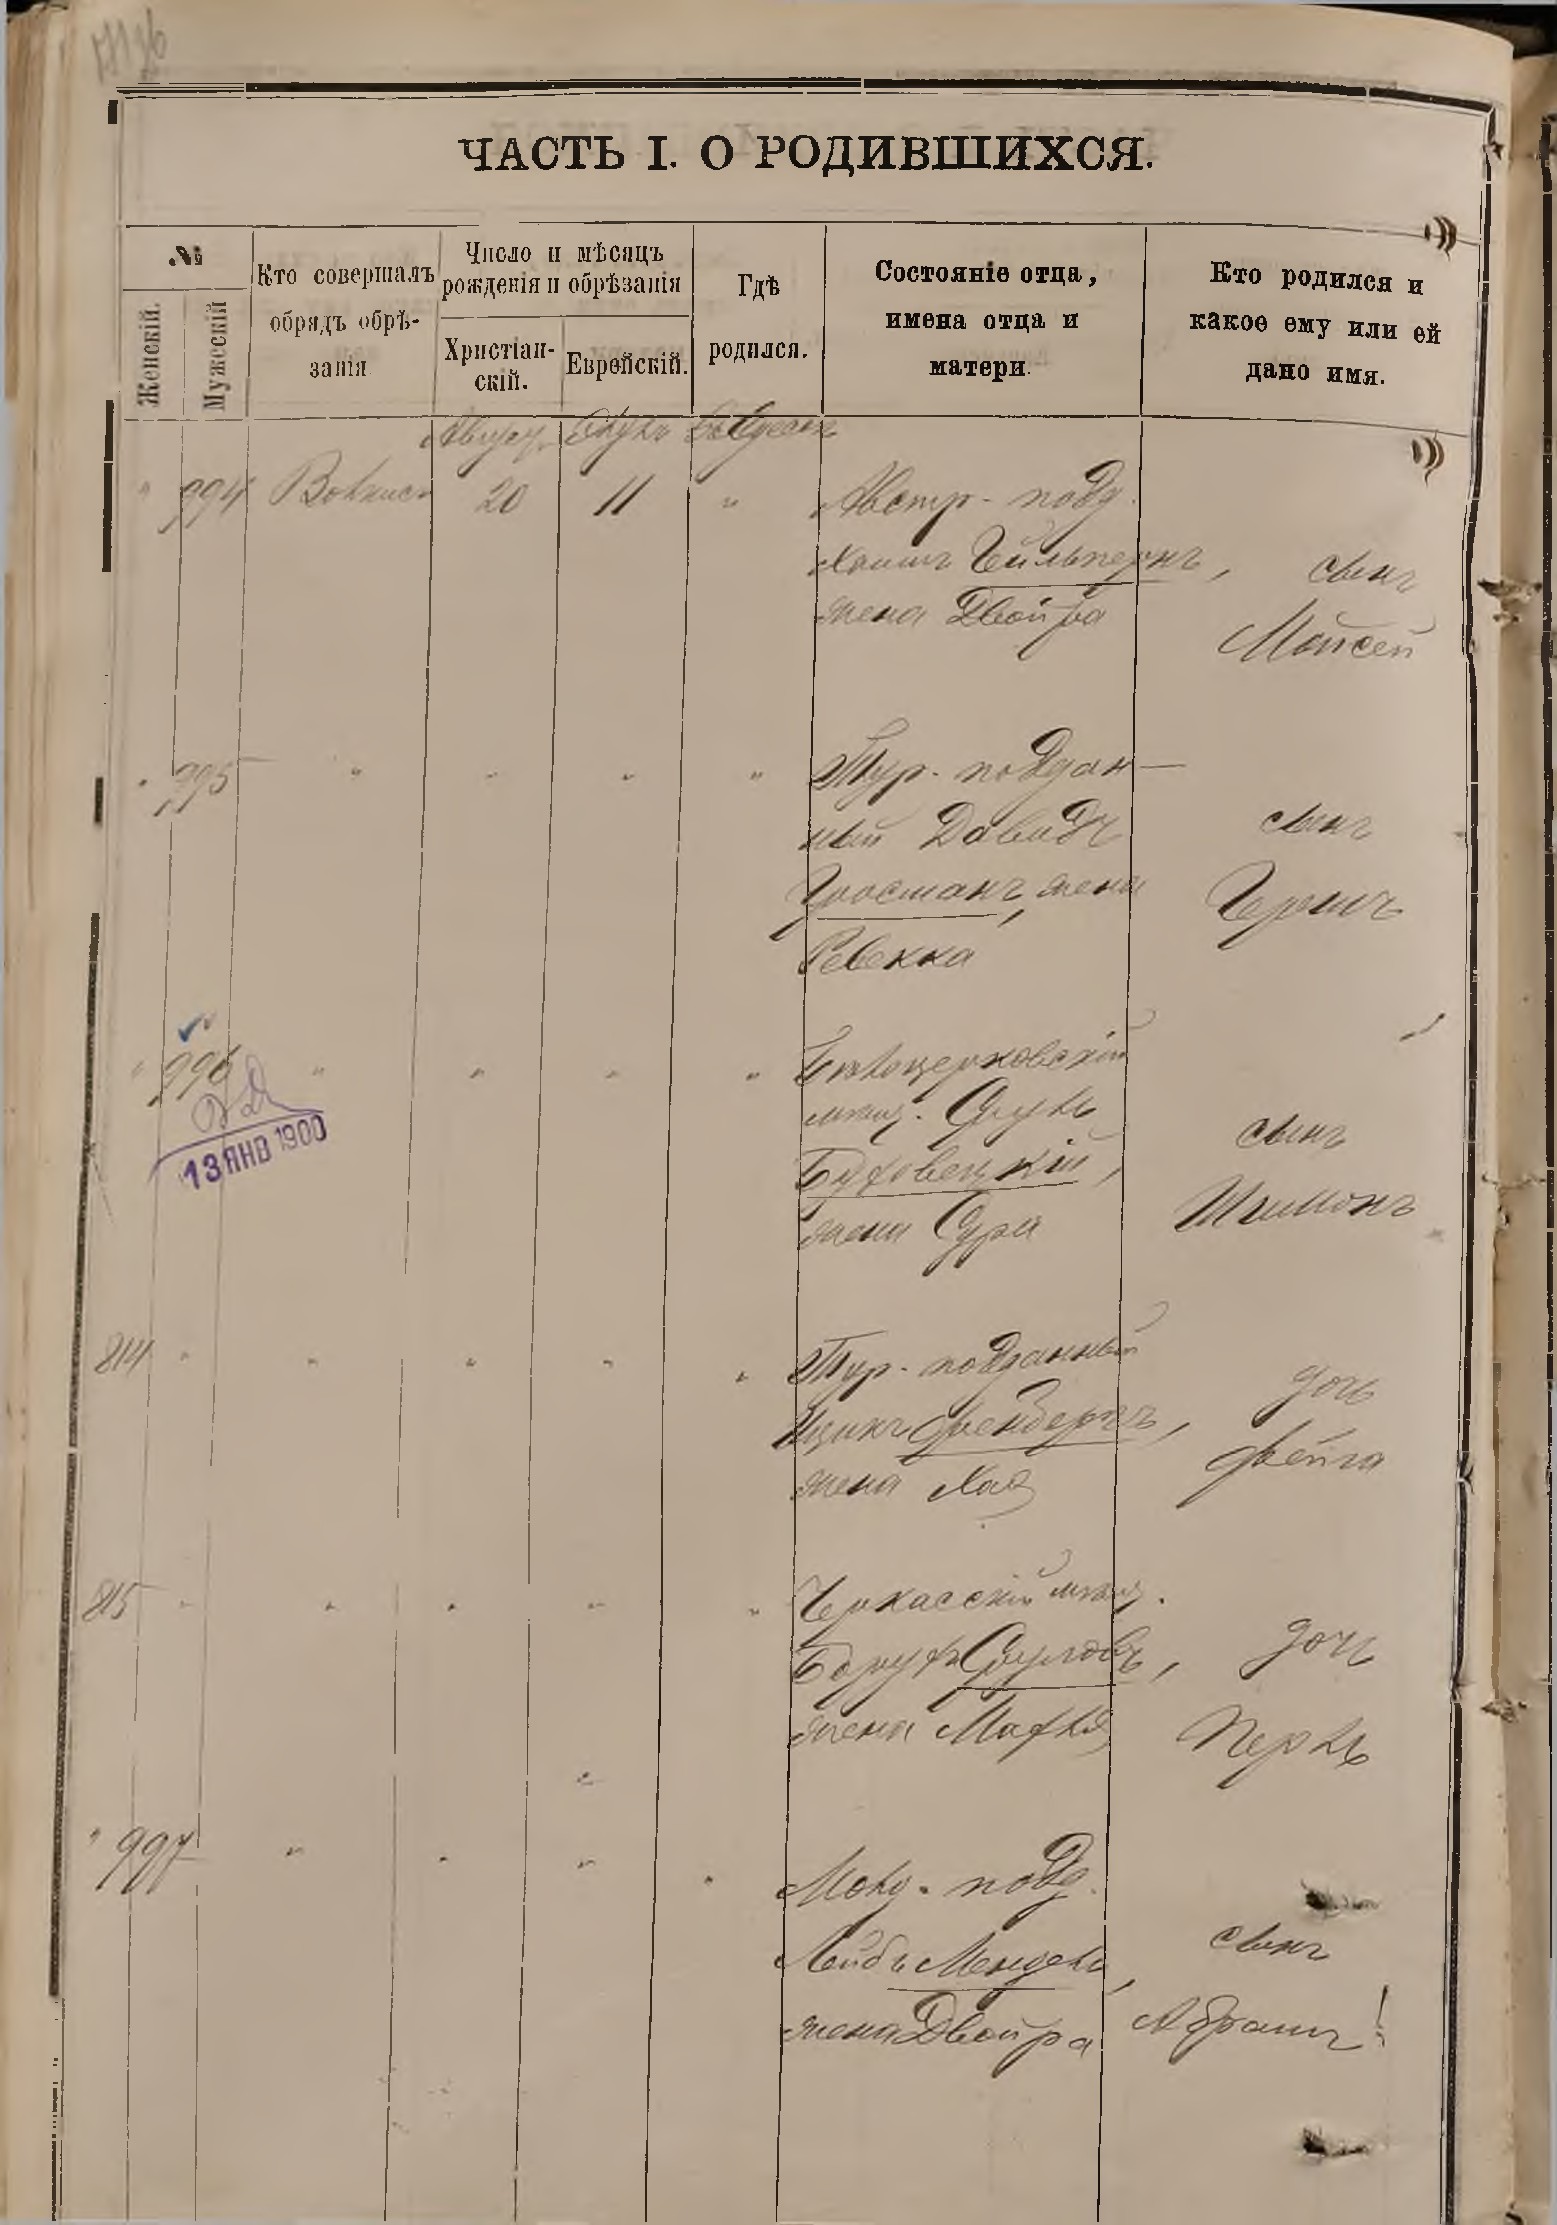 ЧАСТЬ I. О РОДИВШИХСЯ.
№
Женскій.
Мужескій
Кто совершалъ
обрядъ обрѣ-
занія
Число и мѣсяцъ
рожденія и обрѣзанія
Христіан-
скій.
Еврейскій.
Гдѣ
родился.
Состояніе отца,
имена отца и
матери.
Кто родился и
какое ему или ей
дано имя.
Август Элулъ Въ Одессѣ
" 994 20 11 " Австр-подд.
Хаимъ Гейльпернъ, сынъ
жена Двойра
Мойсей
" 995 " " " " Тур. поддан-
ный Давидъ сынъ
Гросманъ, жена Гершъ
Ревекка
" 996 " " " " Бѣлоцерковскій
мѣщ. Сруль сынъ
13 ЯНВ 1900
Буховецкій,
жена Сура Шимонъ
814 " " " " " Тур. подданный дочь
Ицикъ Френбергъ, Фейга
жена Хая
815 " " " " " Черкасскій мѣщ.
Борухъ Сруловъ, дочь
жена Махля Перль
" 997 " " " " Молд. подд.
Лейбъ Мендель, сынъ
жена Двойра Абрамъ